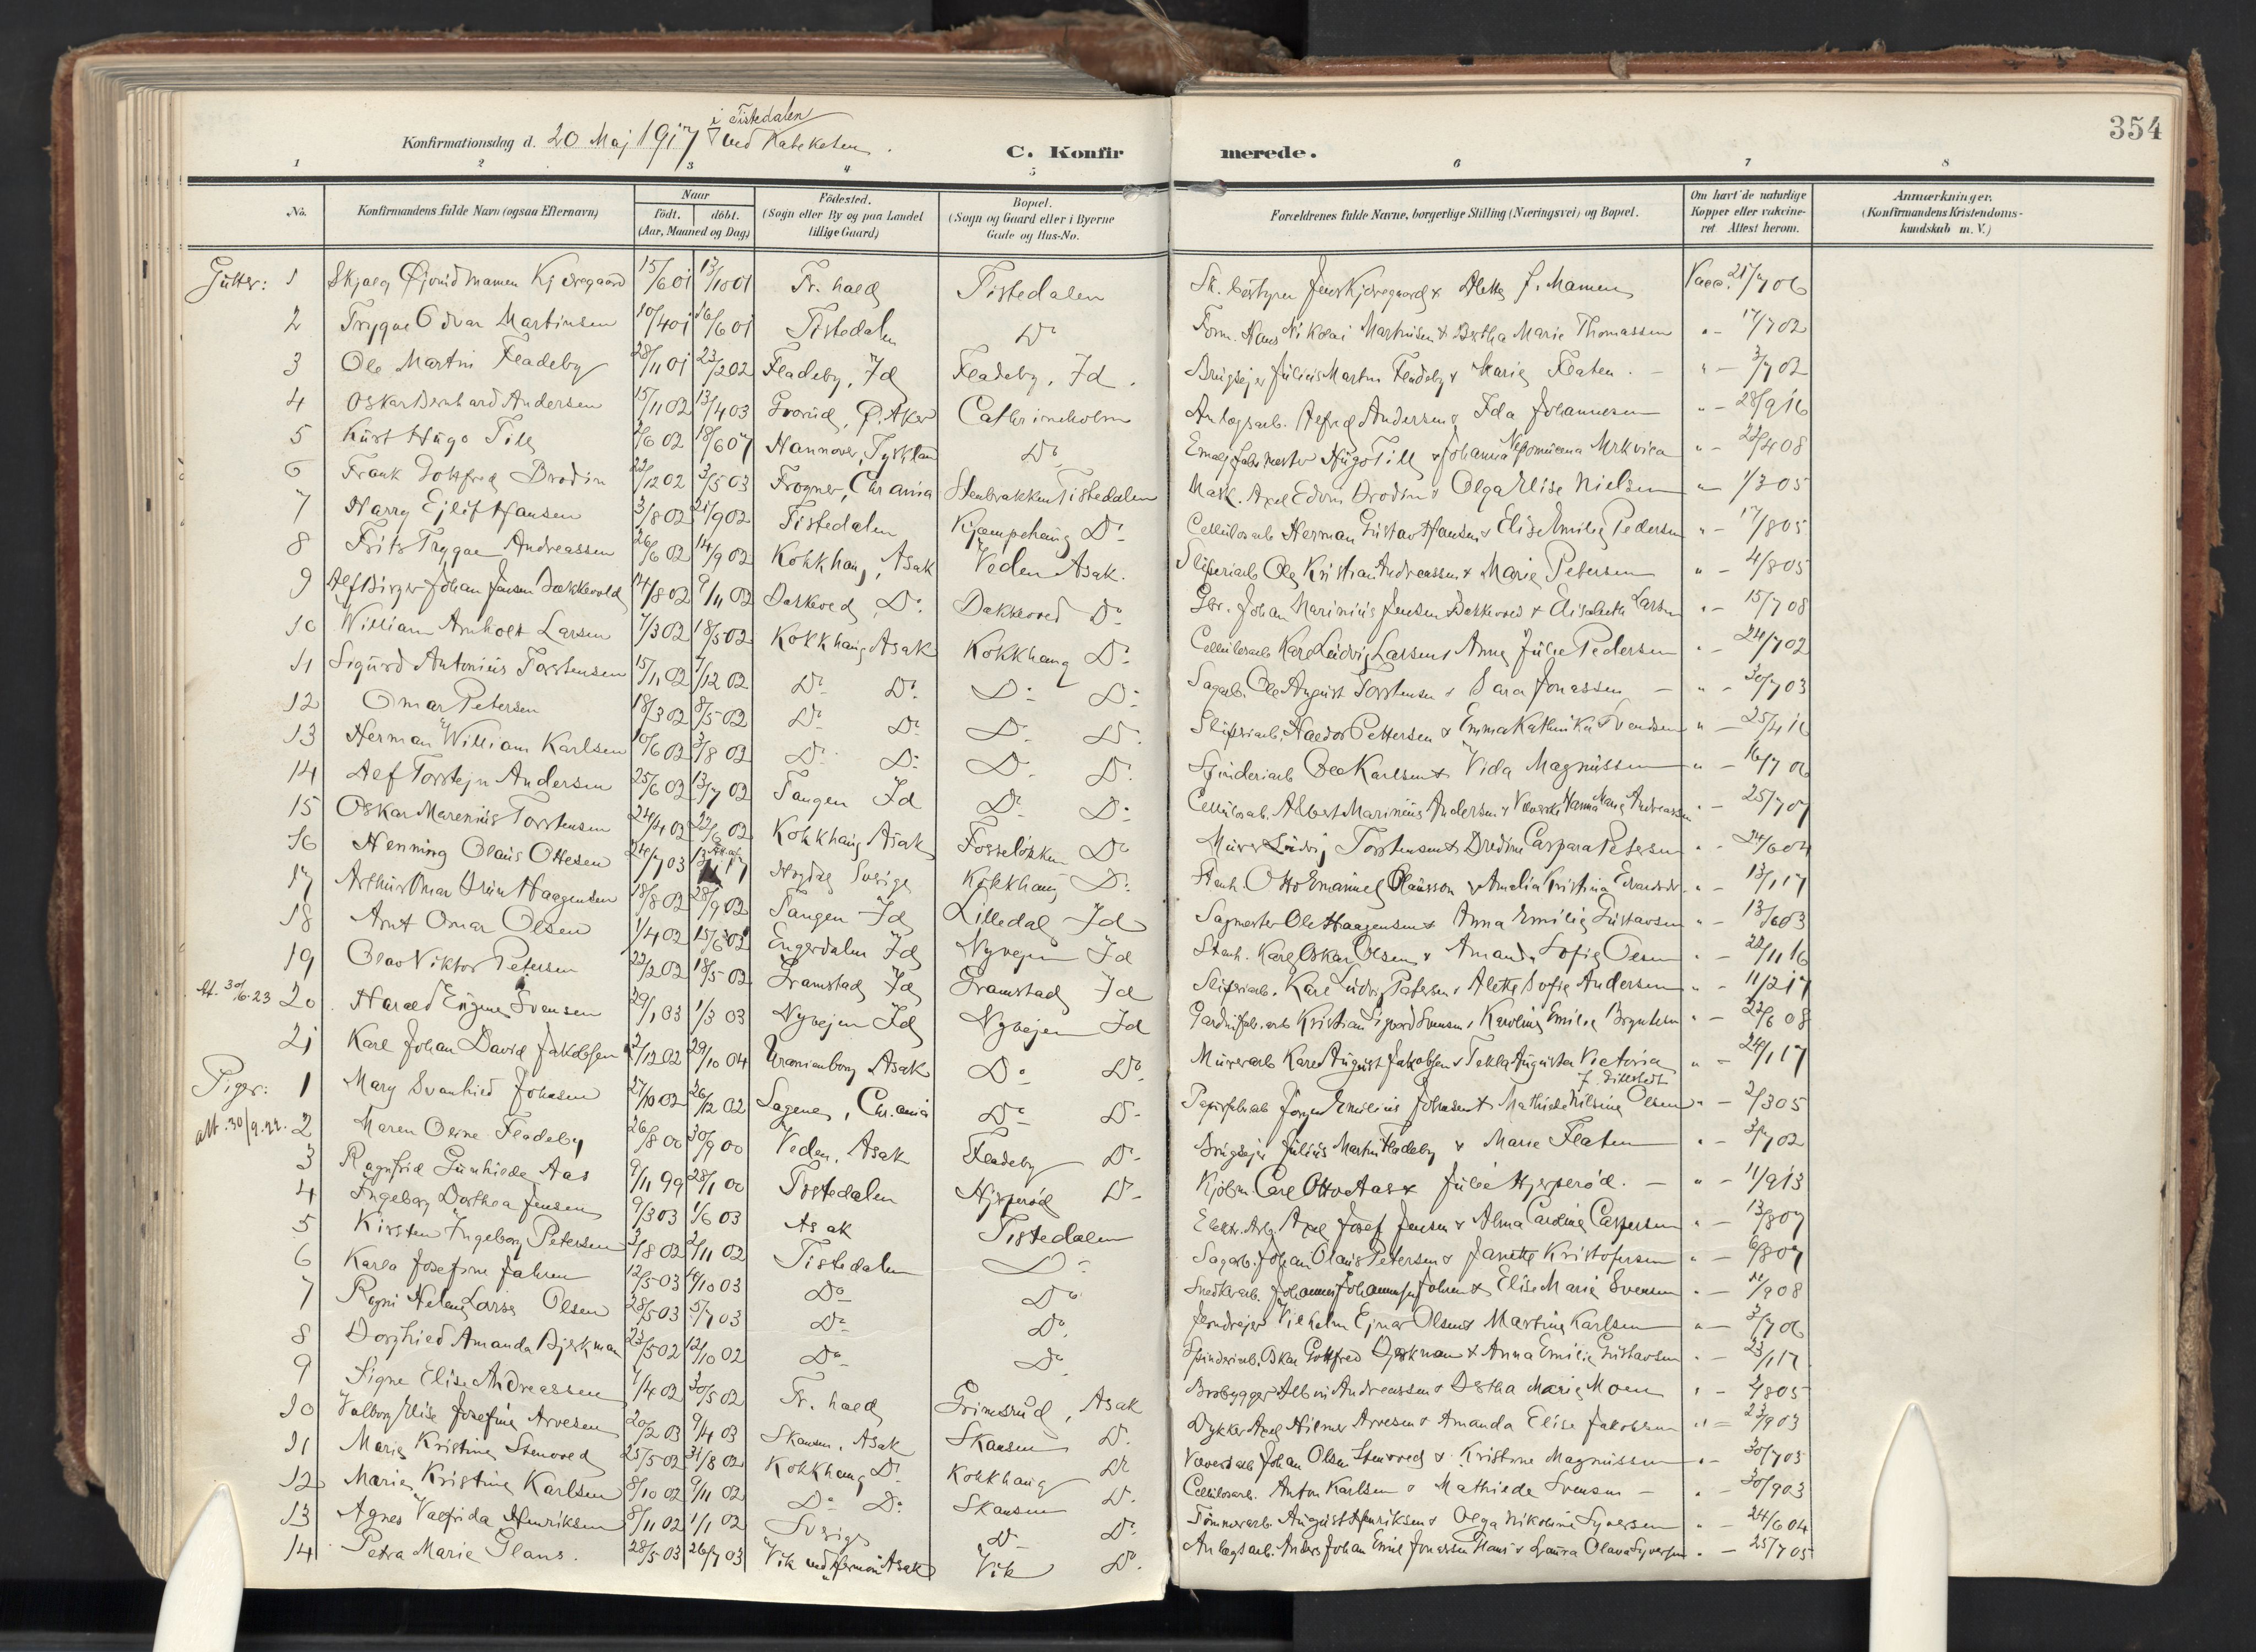 354
i Tistedalen
Konfirmationsdag d. 20 Maj 1917 ved
C. Konfirmerede.
1 2 3 4 5 6 7 8
No. Konfirmandens fulde Navn (ogsaa Efternavn) Naar födt. döbt. (Aar, Maaned og Dag) Födested. (Sogn eller By og paa Landet tillige Gaard) Bopæl. (Sogn og Gaard eller i Byerne Gade og Hus-No. Forældrenes fulde Navne, borgerlige Stilling (Næringsvei) og Bopæl. Om havt de naturlige Kopper eller vakcineret. Attest herom. Anmærkninger. (Konfirmandens Kristendomskundskab m. V.)
Gutter: 1 Skjalg Øjvind Mamen Kjærgaard 15/6 01 13/10 01 Fr. hald Tistedalen Jens Kjærgaard & Aletta f. Mamen Vacc. 21/7 06
2 Trygve Odvar Martinsen 10/4 01 16/6 01 Tistedalen Do Form. Hans Nikolai Martinsen & Bertha Marie Thomassen " - 17/7 02
3 Ole Martin Fladeby 28/11 01 23/2 02 Fladeby, Id Fladeby, Id. Brugsejer Julius Martin Fladeby & Marie Flaten. - " - 3/7 02
4 Oskar Bernhard Andersen 15/11 02 13/4 03 Grorud, Ø. Aker Cathrineholm Anlægsarb. Alfred Andersen & Ida Johannesen " - 28/9 16
5 Kurt Hugo Till 2/6 02 18/6 07 Hannover, Tyskland Do Hugo Till & Johanna Nepomucena Mrkvica " - 22/4 08
6 Frank Gottfred Brodin 22/12 02 3/5 03 Frogner, Chr.ania Stenbrækken Tistedalen Mask. Axel Edvin Brodin & Olga Elise Nielsen " - 1/3 05
7 Harry Ejlif Hansen 3/8 02 21/9 02 Tistedalen Kjæmpehaug Do Cellulosarb. Herman Gustav Hansen & Elise Emilie Pedersen " - 17/8 05
8 Frits Trygve Andreassen 26/6 02 14/9 02 Kokkhaug, Asak Veden Asak. Sliperiarb. Ole Kristian Andreassen & Marie Petersen " - 4/8 05
9 Alf Birger Johan Jensen Dækkevold 14/8 02 9/11 02 Do. Do Gbr. Johan Marinius Jensen & Elisabeth Larsen " - 15/7 08
10 William Arnholt Larsen 7/3 02 18/5 02 Kokkhaug Asak Kokkhaug Do Cellulosarb Karl Ludvig Larsen & Anna Julie Pedersen " - 24/7 02
11 Sigurd Antonius Torstensen 15/11 02 7/12 02 Do Do. Do Do Sagarb. Ole August Torstensen & Sara Jonassen - " - 30/7 03
12 Omar Petersen 18/3 02 8/5 02 Do Do Do Do Sliperiarb. Haldor Pettersen & Emma Kathinka Svendsen " - 25/4 16
13 Herman William Karlsen 10/6 02 3/8 02 Do Do Do Do Spinderiarb Ole Karlsen & Vida Magnussen " - 16/7 06
14 Alf Torstejn Andersen 25/6 02 13/7 02 Tangen Id Do Do Cellulosarb. Albert Marinius Andersen & Hanna Marie Andreassen " - 25/7 07
15 Oskar Marenius Torstensen 24/4 02 22/6 02 Kokkhaug Asak Fosseløkken Do Murer Ludvig Torstensen & Caspara Petersen " - 24/6 04
16 Henning Olaus Ottesen 24/7 03 Sverige Kokkhaug Do Otto Emanuel Olausson & Amalia Kristina " - 13/1 17
17 Arthur Omar Haagensen 18/8 02 28/9 02 Tangen Id Lilledal Id Sagmester Ole Haagensen & Anna Emilie Gustavsen " - 13/6 03
18 Arnt Omar Olsen 1/4 02 15/6 02 Engerdalen Id Nyvejen Id Stenh. Karl Oskar Olsen & Amanda Sofie Olsen " - 22/11 16
19 Olav Viktor Petersen 22/2 02 18/5 02 Gramstad Id Gramstad Id Sliperiarb. Karl Ludvig Petersen & Alette Sofie Andersen " - 11/2 17
att. 30/6.23 20 Harald Eugen Svensen 29/1 03 1/3 03 Nyvejen Id Nyvejen Id Kristian Sigvard Svensen & Karoline Emilie " - 22/6 08
21 Karl Johan David Jakobsen 2/12 02 29/10 04 Uranienborg Asak Do Do Murerarb Karl August Jakobsen & Tekla Augusta Victoria " - 24/1 17
Piger: 1 Mary Svanhild Johnsen 27/10 02 26/12 02 Sagene, Chr.ania Do Do Papirfabarb Jørgen Emilius Johnsen & Mathilde Nilsine Olsen " - 2/3 05
att. 30/9.22. 2 Maren Oline Fladeby 26/8 00 30/9 00 Veden, Asak Fladeby Do Brugsejer Julius Martin Fladeby & Marie Flaten " - 3/7 02
3 Ragnfrid Gunhilda Aas 9/11 99 28/1 00 Tistedalen Hjerperød Do Carl Otto Aas & Julie Hjerperød. - " - 11/9 13
4 Ingeborg Dorthea Jensen 9/3 03 1/6 03 Asak Tistedalen Elektr. Arb. Axel Josef Jensen & Alma Caroline Caspersen " - 13/8 07
5 Kirsten Ingeborg Petersen 3/8 02 2/11 02 Tistedalen Do Sagarb. Johan Olaus Petersen & Janette Kristofersen " - 6/8 07
6 Karla Josefine Jahren 12/5 03 4/10 03 Do Do Snedkerarb. Johannes Johannesen Jahren & Elise Marie Svensen " - 11/9 08
7 Ragni Helene Lovise Olsen 28/5 03 5/7 03 Do Do Jerndrejer Vilhelm Ejnar Olsen & Martine Karlsen " - 3/7 06
8 Borghild Amanda Bjerkman 23/5 02 12/10 02 Do Do Spinderiarb. Oskar Gottfred Bjerkman & Anna Emilie Gustavsen " - 23/1 17
9 Signe Elise Andreassen 7/4 02 30/5 02 Fr. hald Grimsrud, Asak Brobygger Albin Andreassen & Marie Moen " - 2/8 05
10 Valborg Elise Josefine Arvesen 20/2 03 9/4 03 Skansen, Asak Skansen Do. Dykker Axel Hilmer Arvesen & Amanda Elise Jakobsen " - 23/9 03
11 Marie Kristine Stenvold 25/5 02 31/8 02 Kokkhaug Do Kokkhaug Do Johan Olsen Stenvold & Kristine Magnussen " - 30/7 03
12 Marie Kristine Karlsen 8/10 02 9/11 02 Do Do Skansen Do. Cellulosarb. Anton Karlsen & Mathilde Svensen - " - 30/9 03
13 Agnes Valfrida Henriksen 8/11 02 1/1 02 Sverige Do Do Tømmerarb. August Henriksen & Olga Nikoline Syversen " - 24/6 04
14 Petra Marie Glans. 28/5 03 26/7 03 Vik Asak Vik Do. Anlægsarb. Anders Johan Emil Jonassen Glans & Laura Olava Syversen " - 25/7 05